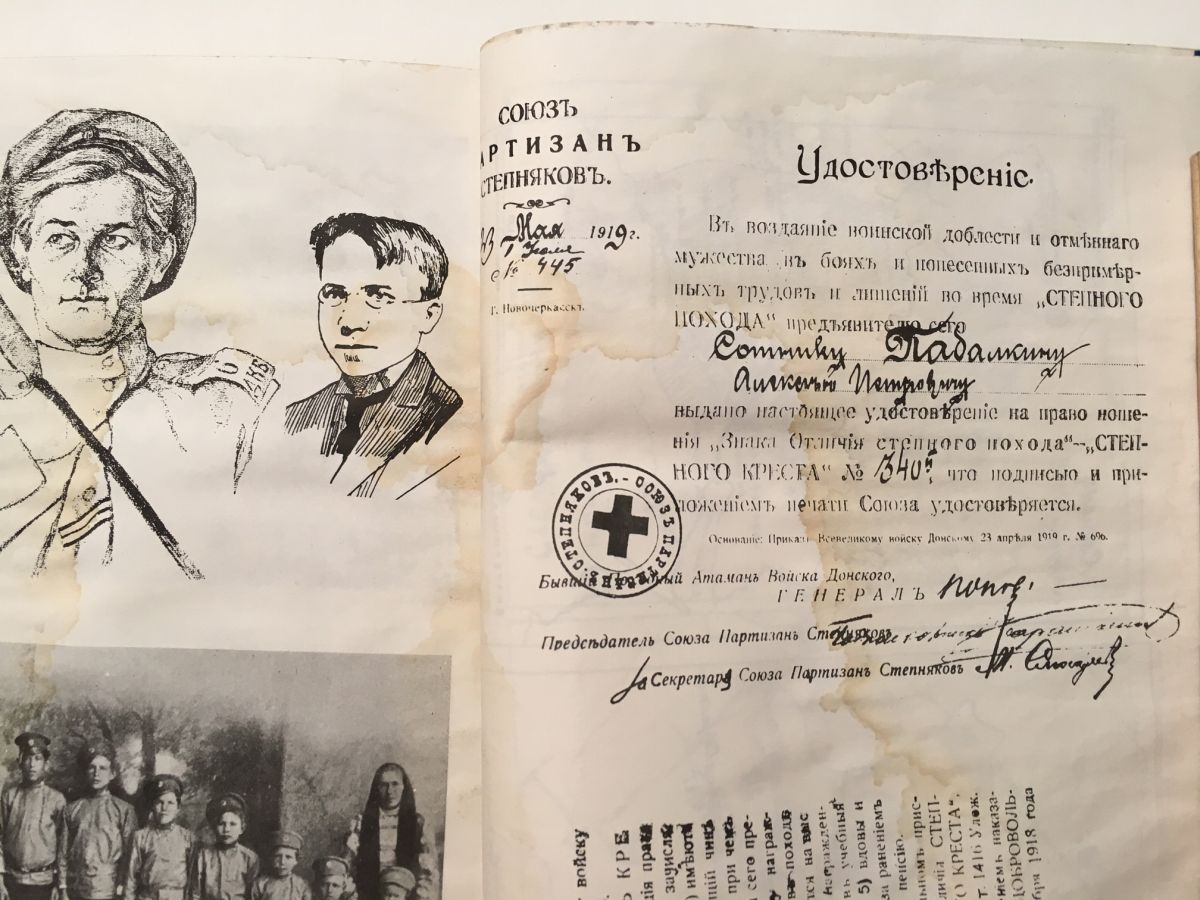 СОЮЗЪ
АРТИЗАНЪ
СТЕПНЯКОВЪ.
Мая 1919 г.
№ 445
г. Новочеркасскъ.
Удостовѣреніе.
Въ воздаяніе воинской доблести и отмѣннаго
мужества въ бояхъ и понесенныхъ безпримѣр-
ныхъ трудовъ и лишеній во время „СТЕПНОГО
ПОХОДА“ предъявителю сего
Сотнику Табалкину
Алексѣю Петровичу
выдано настоящее удостовѣреніе на право ноше-
нія „Знака Отличія степного похода“–„СТЕП-
НОГО КРЕСТА“ № 340, что подписью и при-
ложеніемъ печати Союза удостовѣряется.
Основаніе: Приказъ Всевеликому войску Донскому 23 апрѣля 1919 г. № 696.
СТЕПНЯКОВЪ. - СОЮЗЪ ПАРТИЗАНЪ
Бывшій Атаманъ Войска Донского,
ГЕНЕРАЛЪ Попов
Предсѣдатель Союза Партизанъ Степняковъ
За Секретаря Союза Партизанъ Степняковъ
6
ДКБ
войску
КРЕ
нія права
зачислить
имѣютъ
щій чинъ
при чемъ
сего пре-
награж-
похода
тся на выс
награжден-
въ учебныя
5) вдовы и
за раненіемъ
пенсію.
льномъ прис-
личія СТЕП-
О КРЕСТА“,
т. 1416 Улож.
ніемъ наказа-
ДОБРОВОЛЬ-
бря 1918 года